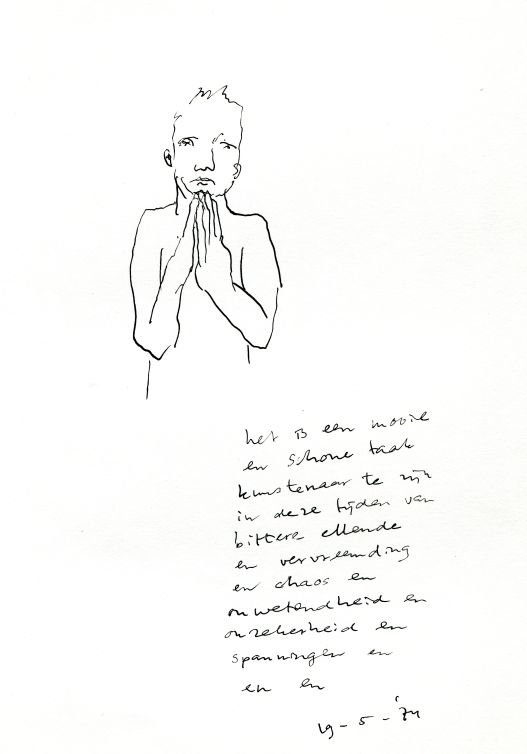 het is een mooie
en schone taak
kunstenaar te zijn
in deze tijden van
bittere ellende
en vervreemding
en chaos en
onwetendheid en
onzekerheid en
spanningen en
en en
19-5-'74